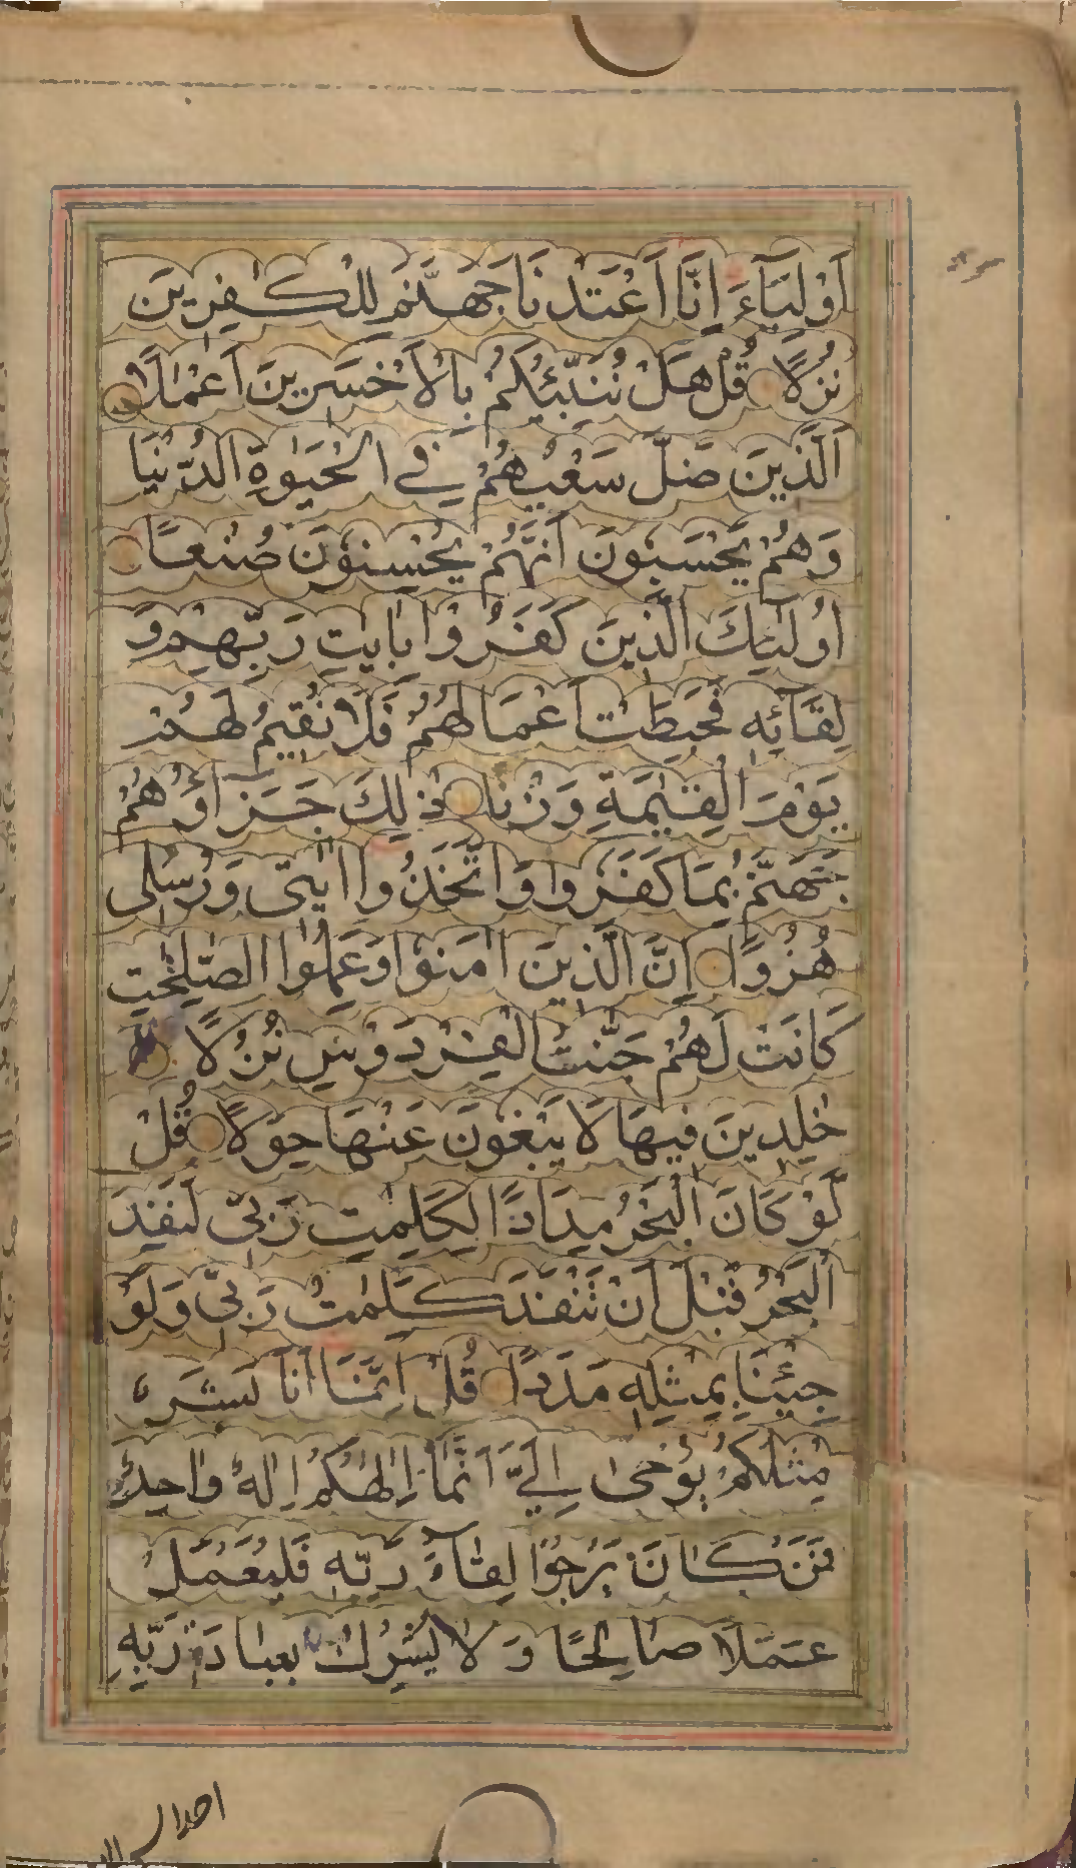 اَوْلِيَآءَ اِنَّا اَعْتَدْنَا جَهَنَّمَ لِلْكٰفِرِينَ
نُزُلًا قُلْ هَلْ نُنَبِّئُكُمْ بِالْاَخْسَرِينَ اَعْمٰالًا
اَلَّذِينَ ضَلَّ سَعْيُهُمْ فِي الْحَيٰوةِ الدُّنْيَا
وَهُمْ يَحْسَبُونَ اَنَّهُمْ يُحْسِنُونَ صُنْعًا
اُولٰئِكَ الَّذِينَ كَفَرُوا بِاٰيٰتِ رَبِّهِمْ وَ
لِقَآئِهٖ فَحَبِطَتْ اَعْمَالُهُمْ فَلَا نُقِيمُ لَهُمْ
يَوْمَ الْقِيٰمَةِ وَزْنًا ذٰلِكَ جَزَاؤُهُمْ
جَهَنَّمُ بِمَا كَفَرُوا وَاتَّخَذُوا اٰيٰتِى وَرُسُلِى
هُزُوًا اِنَّ الَّذِينَ اٰمَنُوا وَعَمِلُوا الصّٰلِحٰتِ
كَانَتْ لَهُمْ جَنّٰتُ الْفِرْدَوْسِ نُزُلًا
خٰلِدِينَ فِيهَا لَا يَبْغُونَ عَنْهَا حِوَلًا قُلْ
لَوْ كَانَ الْبَحْرُ مِدَادًا لِكَلِمٰتِ رَبِّى لَنَفِدَ
الْبَحْرُ قَبْلَ اَنْ تَنْفَدَ كَلِمٰتُ رَبِّى وَلَوْ
جِئْنَا بِمِثْلِهٖ مَدَدًا قُلْ اِنَّمَا اَنَا بَشَرٌ
مِثْلُكُمْ يُوحٰى اِلَيَّ اَنَّمَا اِلٰهُكُمْ اِلٰهٌ وٰاحِدٌ
فَمَنْ كَانَ يَرْجُوا لِقَآءَ رَبِّهٖ فَلْيَعْمَلْ
عَمَلًا صَالِحًا وَ لَا يُشْرِكْ بِعِبَادَةِ رَبِّهٖ